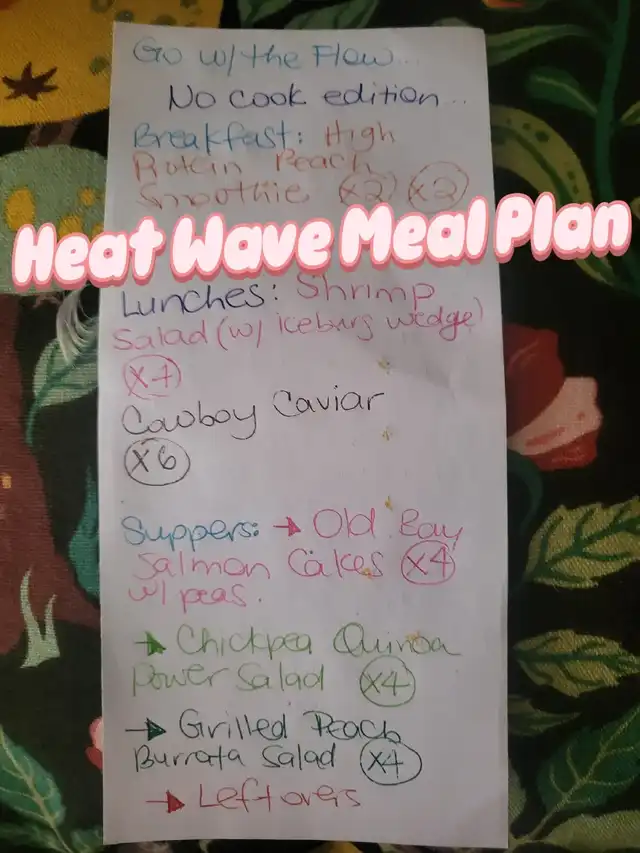 Go w/ the Flow...
No cook edition...
Breakfast: High
Protein Peach
Smoothie x2 x2
Heat Wave Meal Plan
Lunches: Shrimp
Salad (w/ iceburg wedge)
x7
Cowboy Caviar
x6
Suppers: → Old Bay
Salmon Cakes x4
w/ peas.
→ Chickpea Quinoa
Power Salad x4
→ Grilled Peach
Burrata Salad x4
→ Leftovers